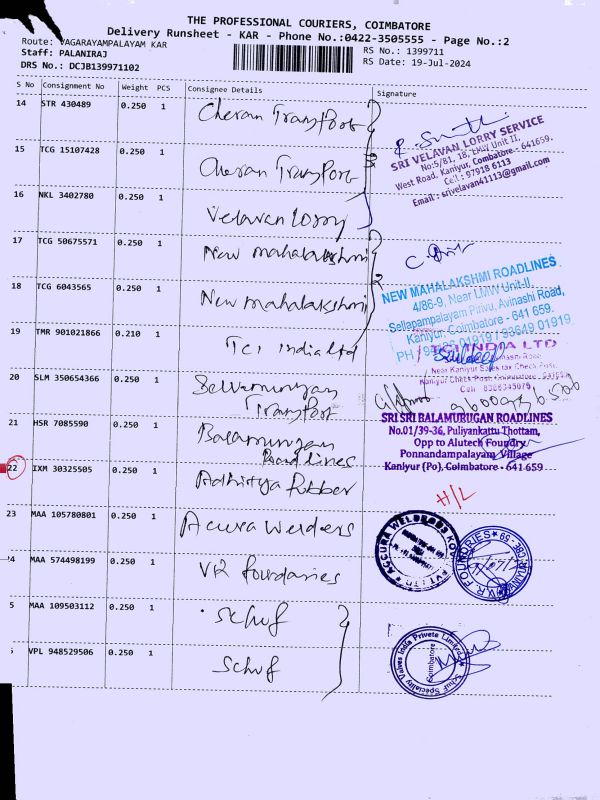 THE PROFESSIONAL COURIERS, COIMBATORE
Delivery Runsheet - KAR - Phone No.:0422-3505555 - Page No.:2
Route: VAGARAYAMPALAYAM KAR
RS No.: 1399711
Staff: PALANIRAJ
RS Date: 19-Jul-2024
DRS No.: DCJB139971102
S No Consignment No Weight PCS Consignee Details Signature
14 STR 430489 0.250 1 Cheran Transport
15 TCG 15107428 0.250 1 Cheran Transport
SRI VELAVAN LORRY SERVICE
No:5/81, 18, LMW Unit II,
West Road, Kaniyur, Coimbatore - 641659.
Cell: 97918 6113
Email : srivelavan41113@gmail.com
16 NKL 3402780 0.250 1 Velavan Lorry
17 TCG 50675571 0.250 1 New mahalakshmi
18 TCG 6043565 0.250 1 New mahalakshmi
NEW MAHALAKSHMI ROADLINES
4/86-9, Near LMW Unit-II,
Sellapampalayam Pirivu, Avinashi Road,
Kaniyur, Coimbatore - 641 659.
19 TMR 901021866 0.210 1 TCI India Ltd
INDIA LTD
Near Kaniyur Sales tax Check Post,
20 SLM 350654366 0.250 1 Selvamurugan
Transport
21 HSR 7085590 0.250 1 Balamurugan
Roadlines
SRI SRI BALAMURUGAN ROADLINES
No.01/39-36, Puliyankattu Thottam,
Opp to Alutech Foundry
Ponnandampalayam Village
Kaniyur (Po), Coimbatore - 641 659
22 IXM 30325505 0.250 1 Adhitya Rubber
H/L
23 MAA 105780801 0.250 1 Accura Welders
4 MAA 574498199 0.250 1 VR foundaries
V.R. FOUNDRIES
5 MAA 109503112 0.250 1 Schuf
VPL 948529506 0.250 1 Schuf
Schuf Speciality Valves India Private Limited
Coimbatore